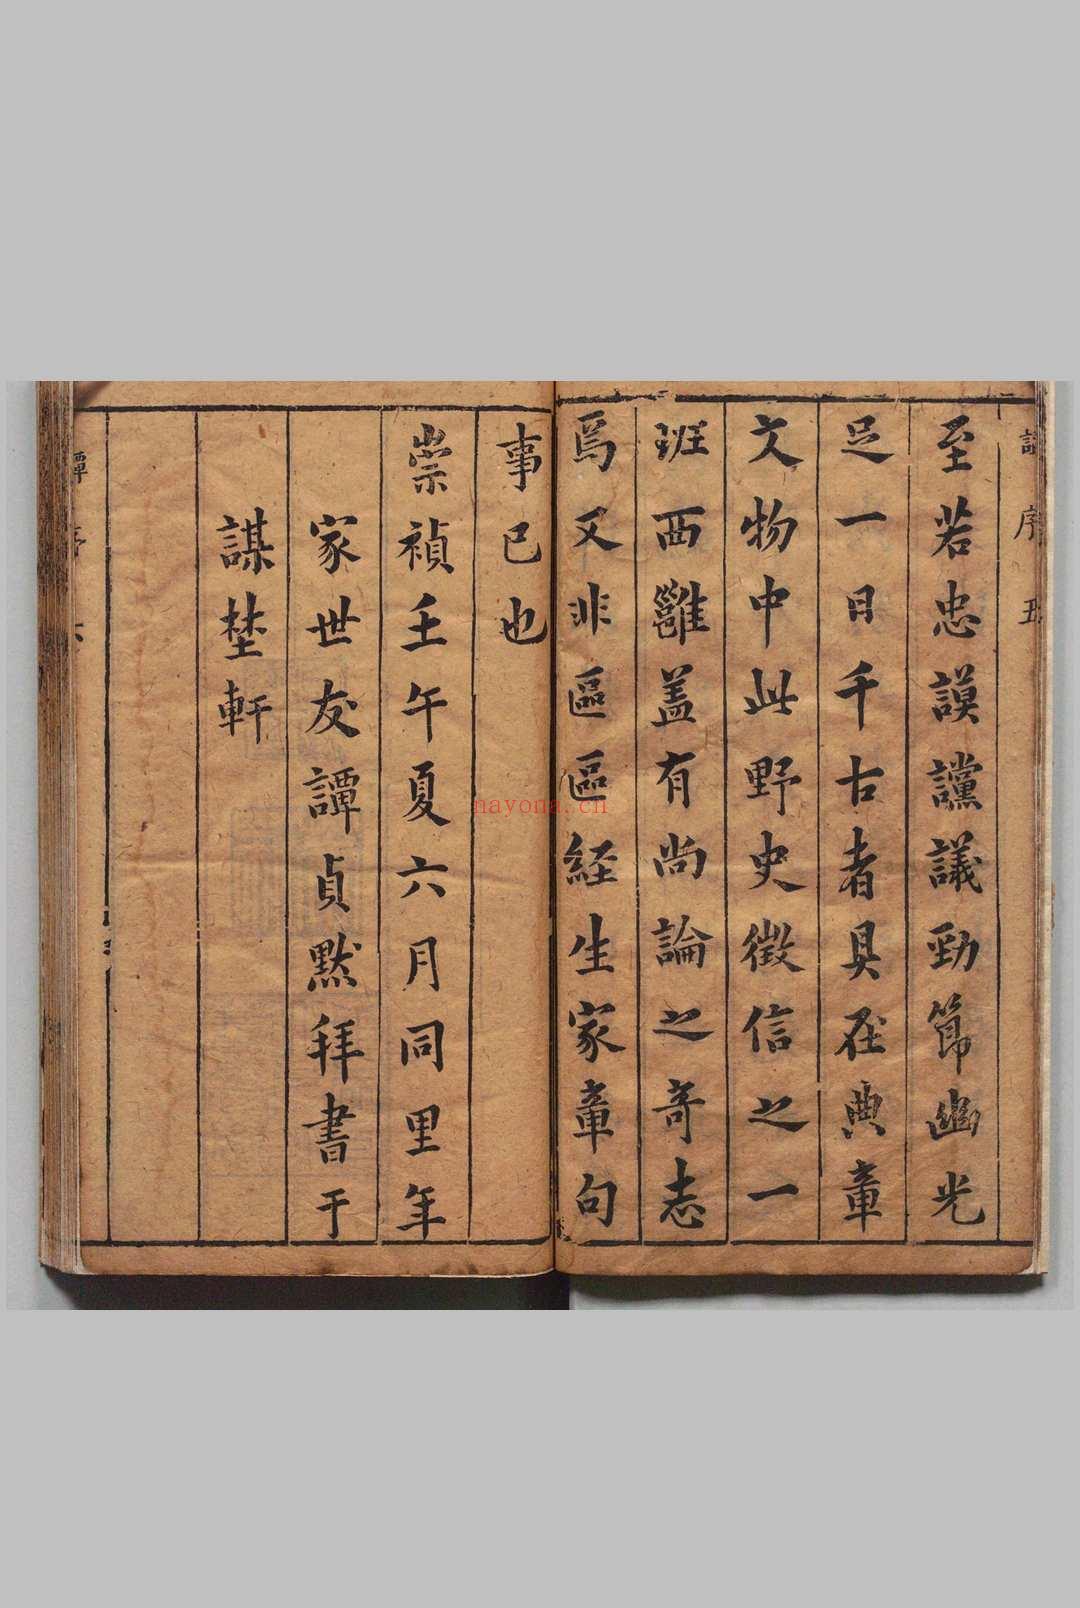 序五
至若忠謨讜議勁節幽光
足一日千古者具在典章
文物中此野史徵信之一
班西雝蓋有尚論之奇志
焉又非區區経生家章句
事已也
崇禎壬午夏六月同里年
家世友譚貞默拜書于
謀埜軒
譚序六
nayona.cn